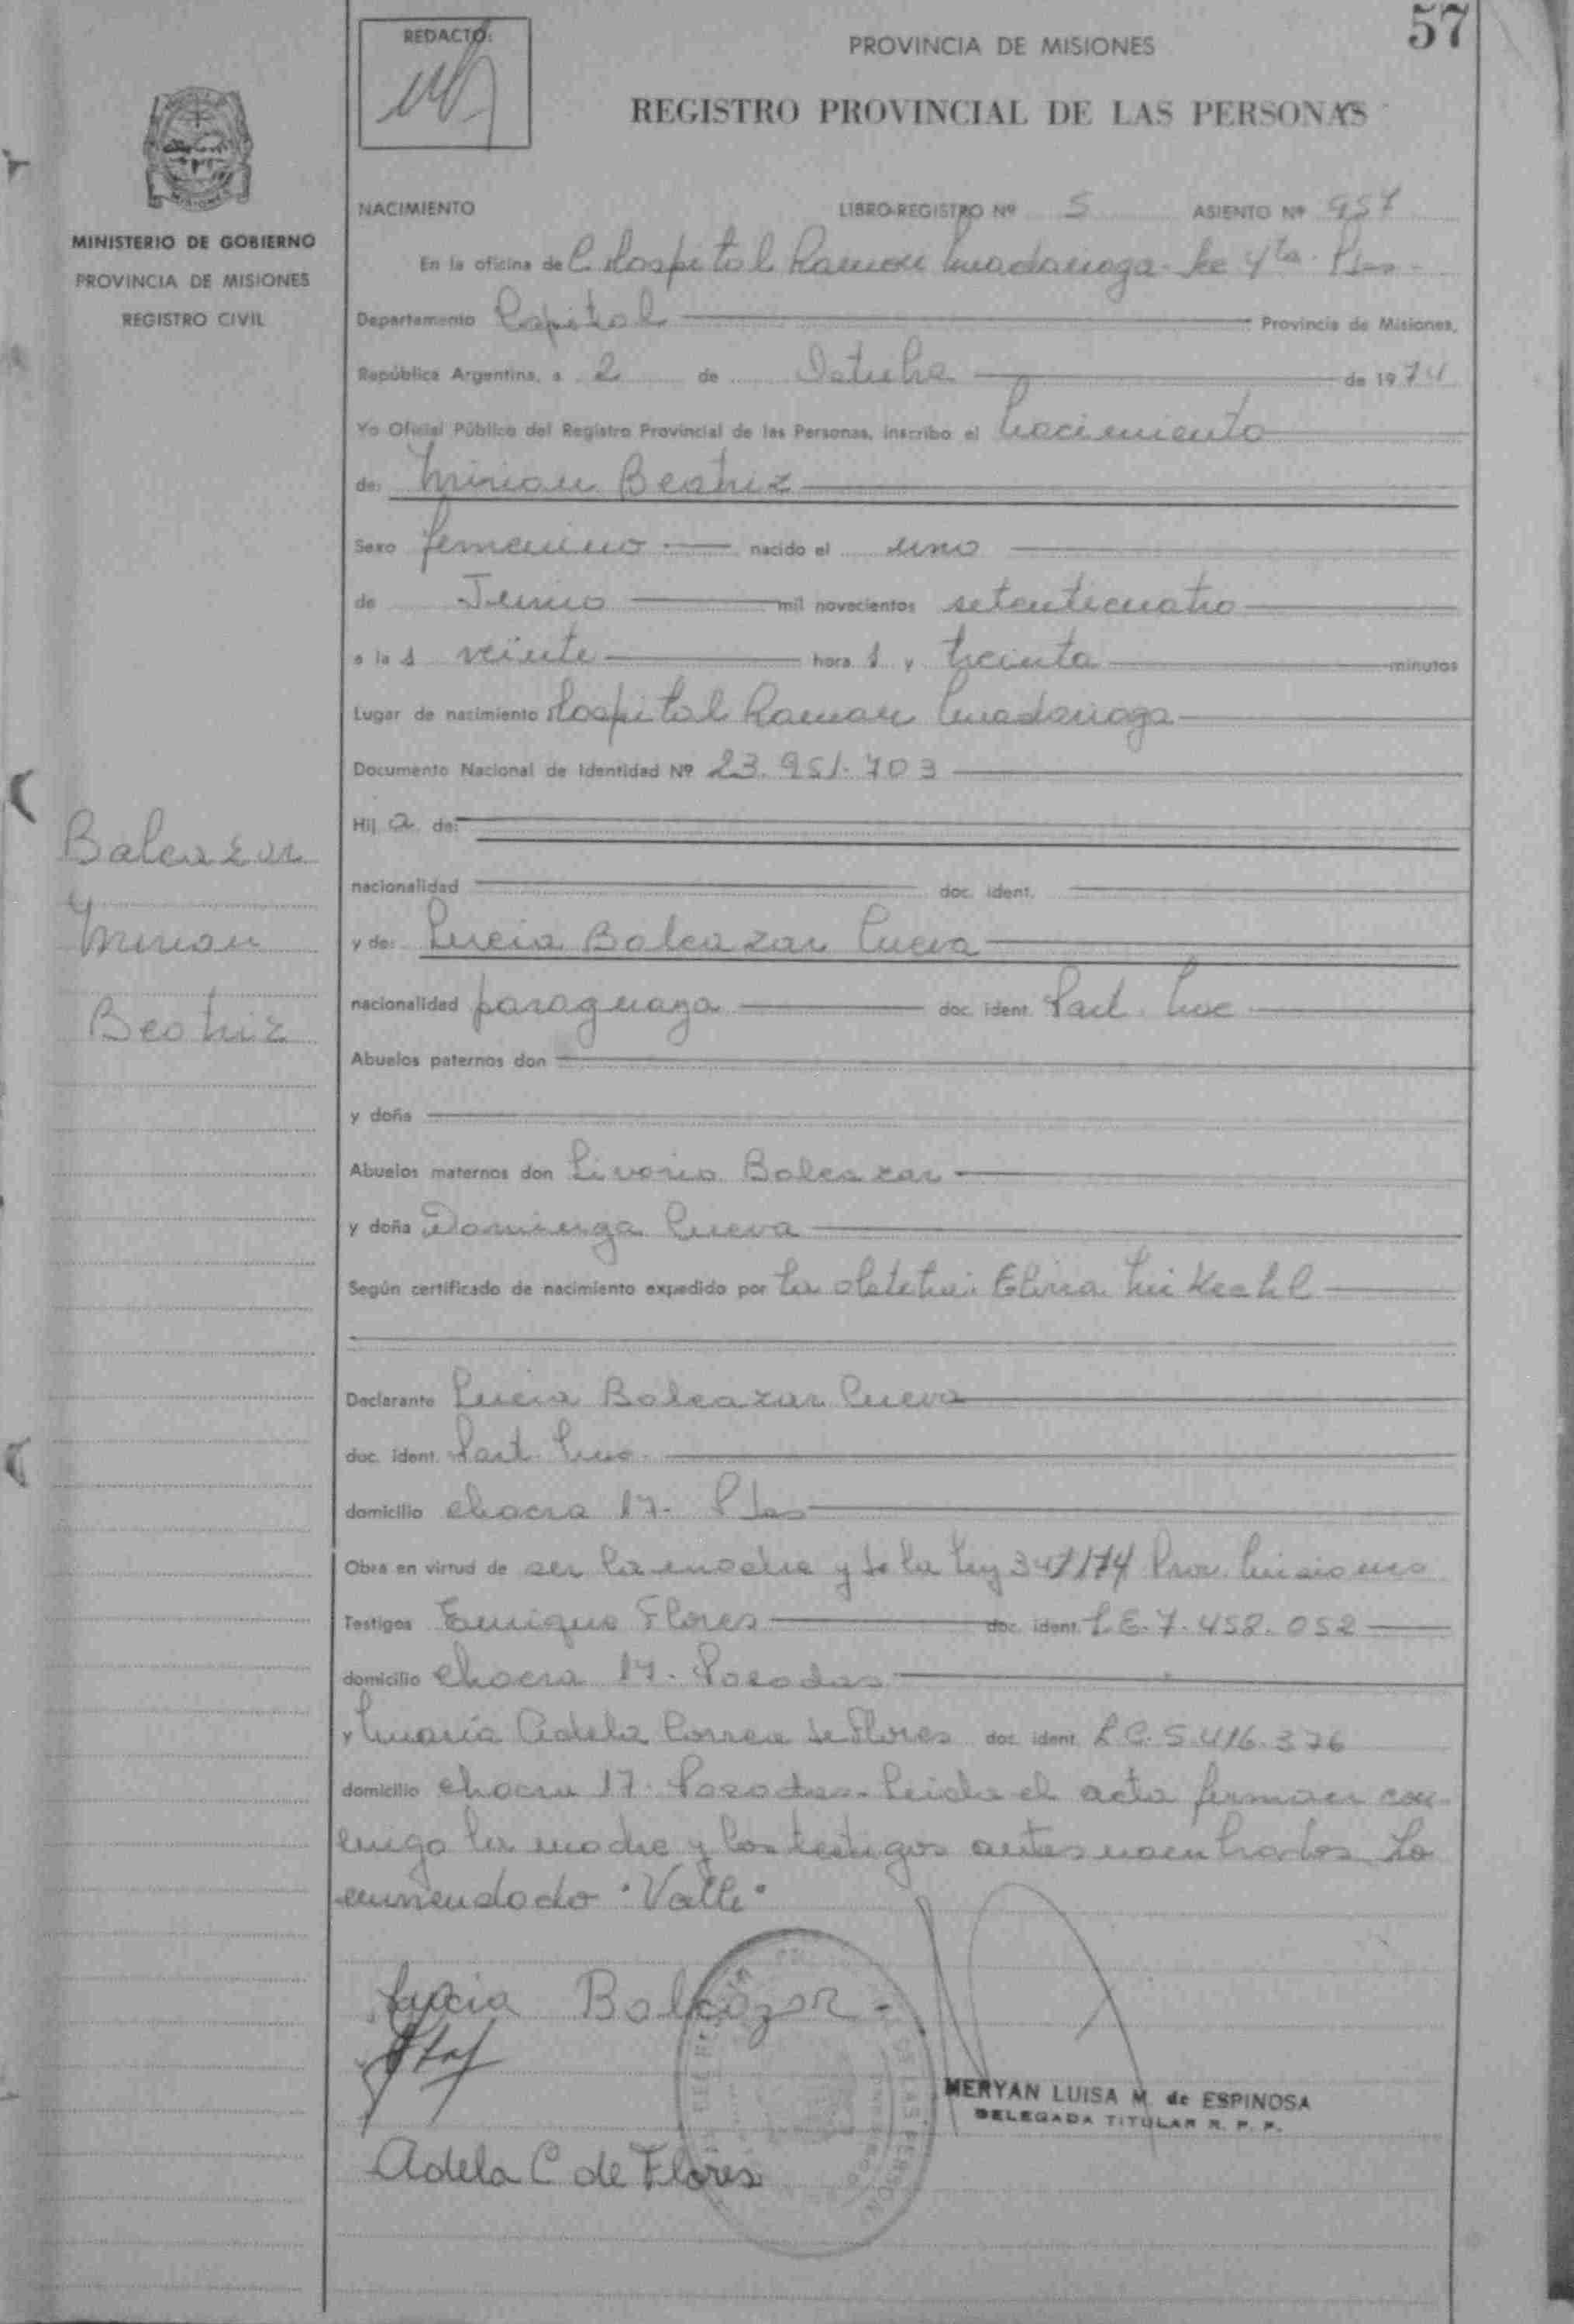 57
REDACTO:
PROVINCIA DE MISIONES
REGISTRO PROVINCIAL DE LAS PERSONAS
MINISTERIO DE GOBIERNO
PROVINCIA DE MISIONES
REGISTRO CIVIL
NACIMIENTO LIBRO-REGISTRO Nº 5 ASIENTO Nº 957
En la oficina de Hospital Ramon Madariaga
Departamento Capital Provincia de Misiones,
República Argentina, a 2 de Octubre de 1974
Yo Oficial Público del Registro Provincial de las Personas, inscribo el Nacimiento
de: Mirian Beatriz
Sexo femenino nacido el uno
de Junio mil novecientos setenticuatro
a la s veinte hora s y treinta minutos
Lugar de nacimiento Hospital Ramon Madariaga
Documento Nacional de Identidad Nº 23.951.703
Hij a de:
nacionalidad doc. ident.
y de: Lucia Balcazar Cueva
nacionalidad paraguaya doc. ident.
Abuelos paternos don
y doña
Abuelos maternos don Livorio Balcazar
y doña Dominga Cueva
Según certificado de nacimiento expedido por la Elina
Declarante Lucia Balcazar Cueva
doc. ident.
domicilio chacra 17. Pdas
Obra en virtud de ser la madre y de la ley 347/74 Prov. Misiones
Testigos Enrique Flores doc. ident. L.E. 7.458.052
domicilio chacra 17. Posadas
y María Adela Correa de Flores doc. ident. L.C. 5.416.376
domicilio chacra 17. Posadas. Leida el acta firman con
migo la madre y los testigos antes nombrados. Lo
enmendado "Valle"
Balcazar
Mirian
Beatriz
Lucia Balcazar
Adela C de Flores
MERYAN LUISA M. de ESPINOSA
DELEGADA TITULAR R. P. P.